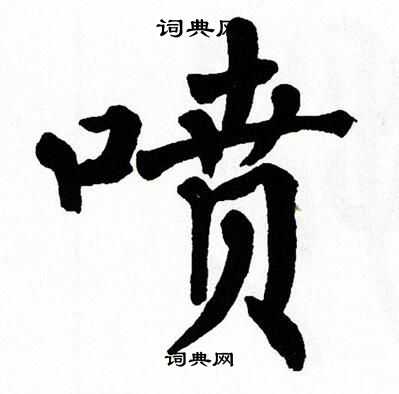 词典网
喷
词典网